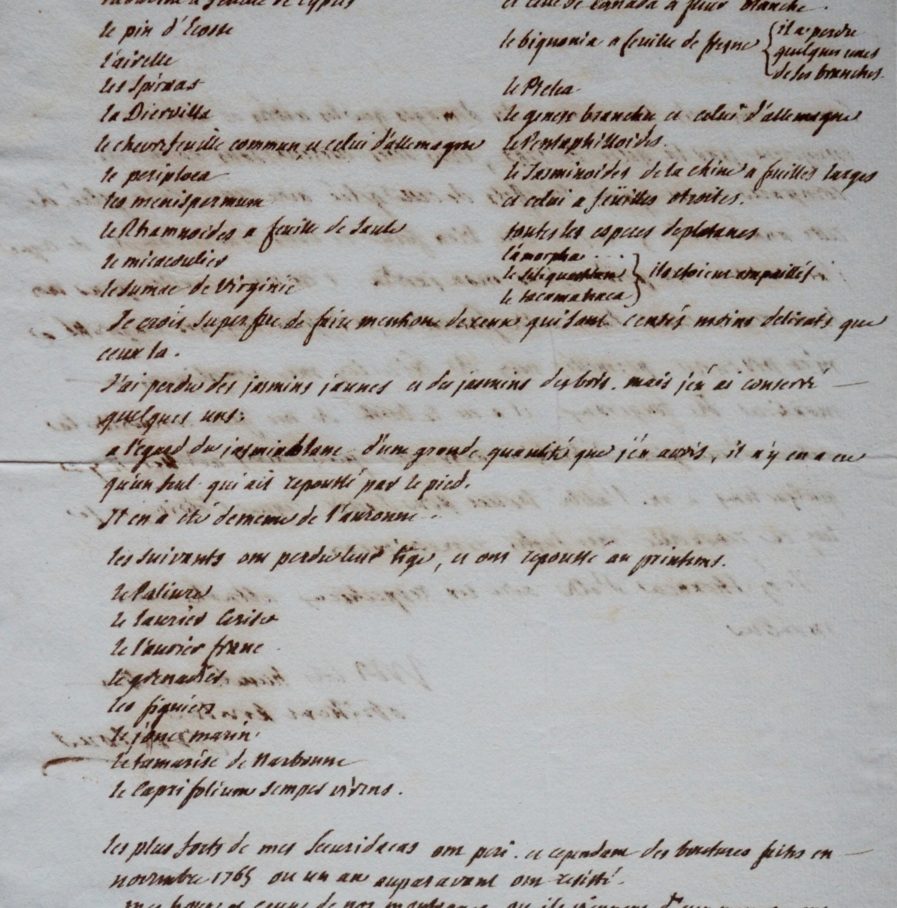 le pin d'Ecosse
l'airelle
les Spirœas
la Diervilla
le chevrefeuille commun et celui d'allemagne
le periploca
les menispermum
le Rhamnoides a feuille de Saule
le micocoulier
le sumac de Virginie
et celle de Canada a fleur blanche.
le bignonia a feuille de fresne
il a perdu
quelques unes
de ses branches.
le Ptelea
le genest branchu et celui d'allemagne
le Pentaphilloides.
le Jasminoides de la chine a fuilles larges
et celui a feüilles etroites.
toutes les especes de platanes
l'amorpha
le siliquastrum
le tacamahaca
ils etoient empaillés
Je crois superflu de faire mention de ceux qui sont censés moins delicats que
ceux la.
J'ai perdu des jasmins jaunes et des jasmins des bois. mais j'en ai conservé
quelques uns;
a l'egard du jasmin blanc d'une grande quantité que j'en avois, il n'y en a eu
qu'un seul qui ait repoussé par le pied.
Il en a été de meme de l'auronne
les suivants ont perdu leur tige, et ont repoussé au printems.
le Paliure
le laurier Cerise
le laurier franc
le grenadier
les figuiers
le jonc marin
le tamarisc de Narbonne
le Caprifolium semper virens.
les plus forts de mes Securidacas ont peri. et cependant des boutures faites en
novembre 1765 ou un an auparavant ont resisté.